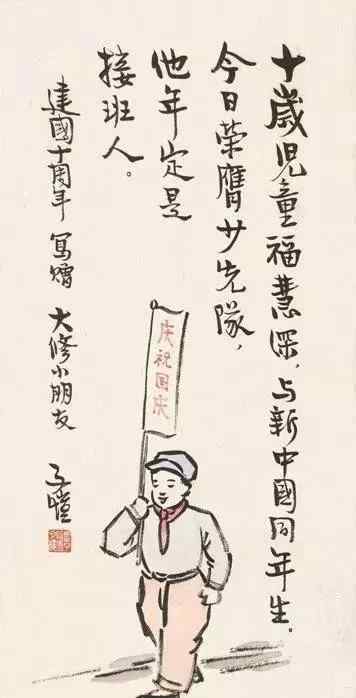 十歲兒童福慧深，与新中國同年生．
今日荣膺少先隊，
他年定是
接班人。
建國十周年 寫贈 大修小朋友 子愷
庆祝国庆